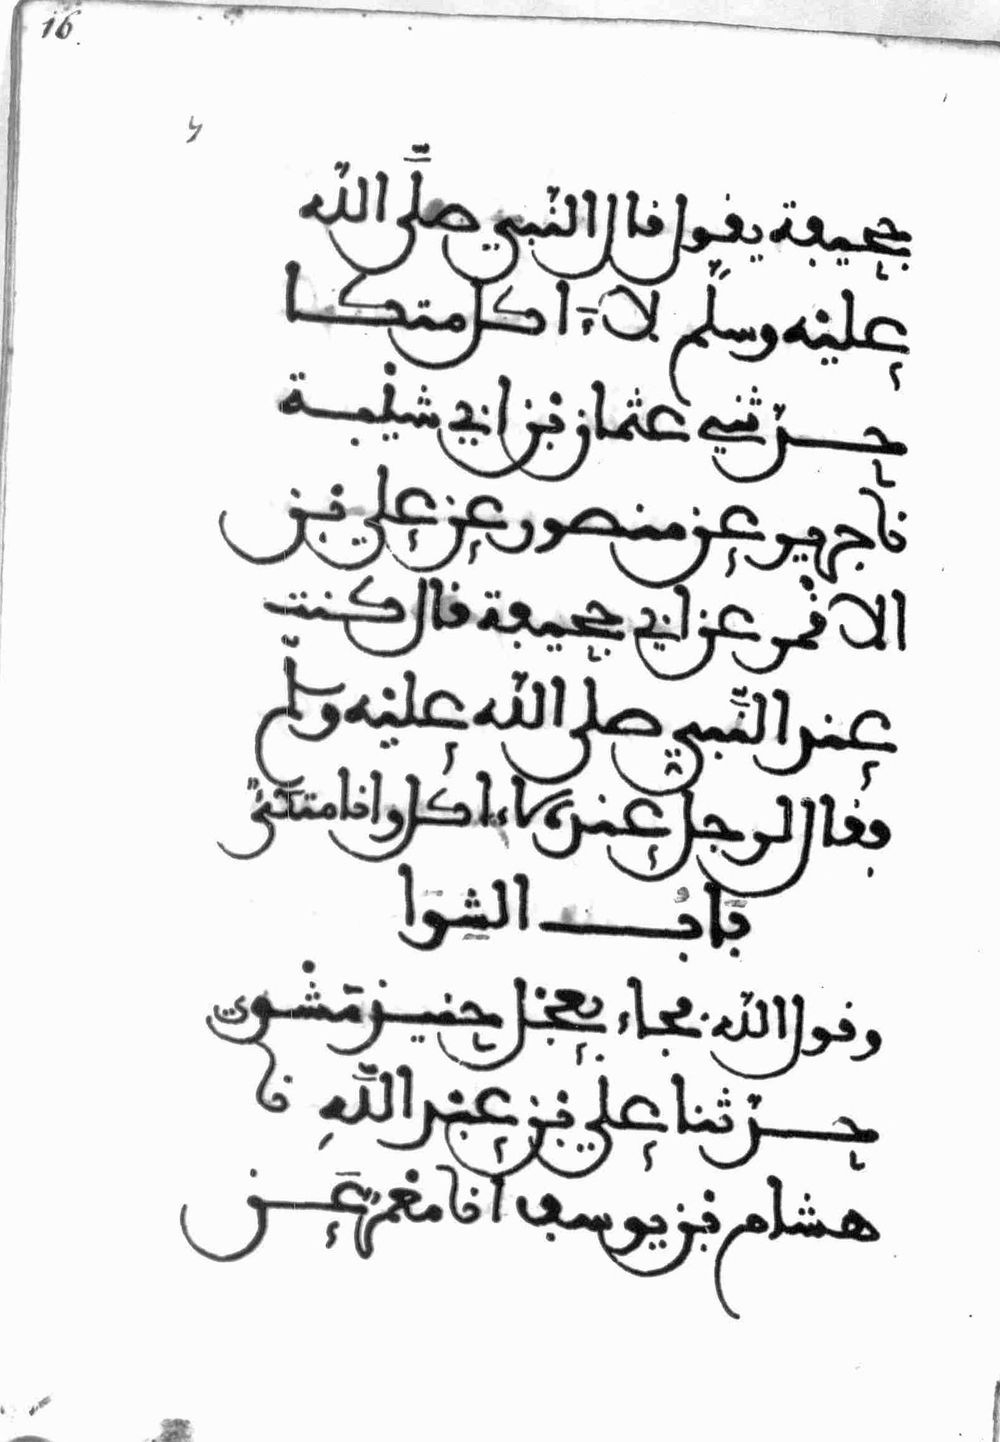 16
جحيفة يقول قال النبي صلى الله
عليه وسلم لا اكل متكا
حدثني عثمان بن ابي شيبة
نا جرير عن منصور عن علي بن
الاقمر عن ابي جحيفة قال كنت
عند النبي صلى الله عليه وسلم
فقال لرجل عنده لا اكل وانا متكئ
باب الشوا
وقول الله فجاء بعجل حنيذ مشوي
حدثنا علي بن عبد الله نا
هشام بن يوسف انا معمر عن